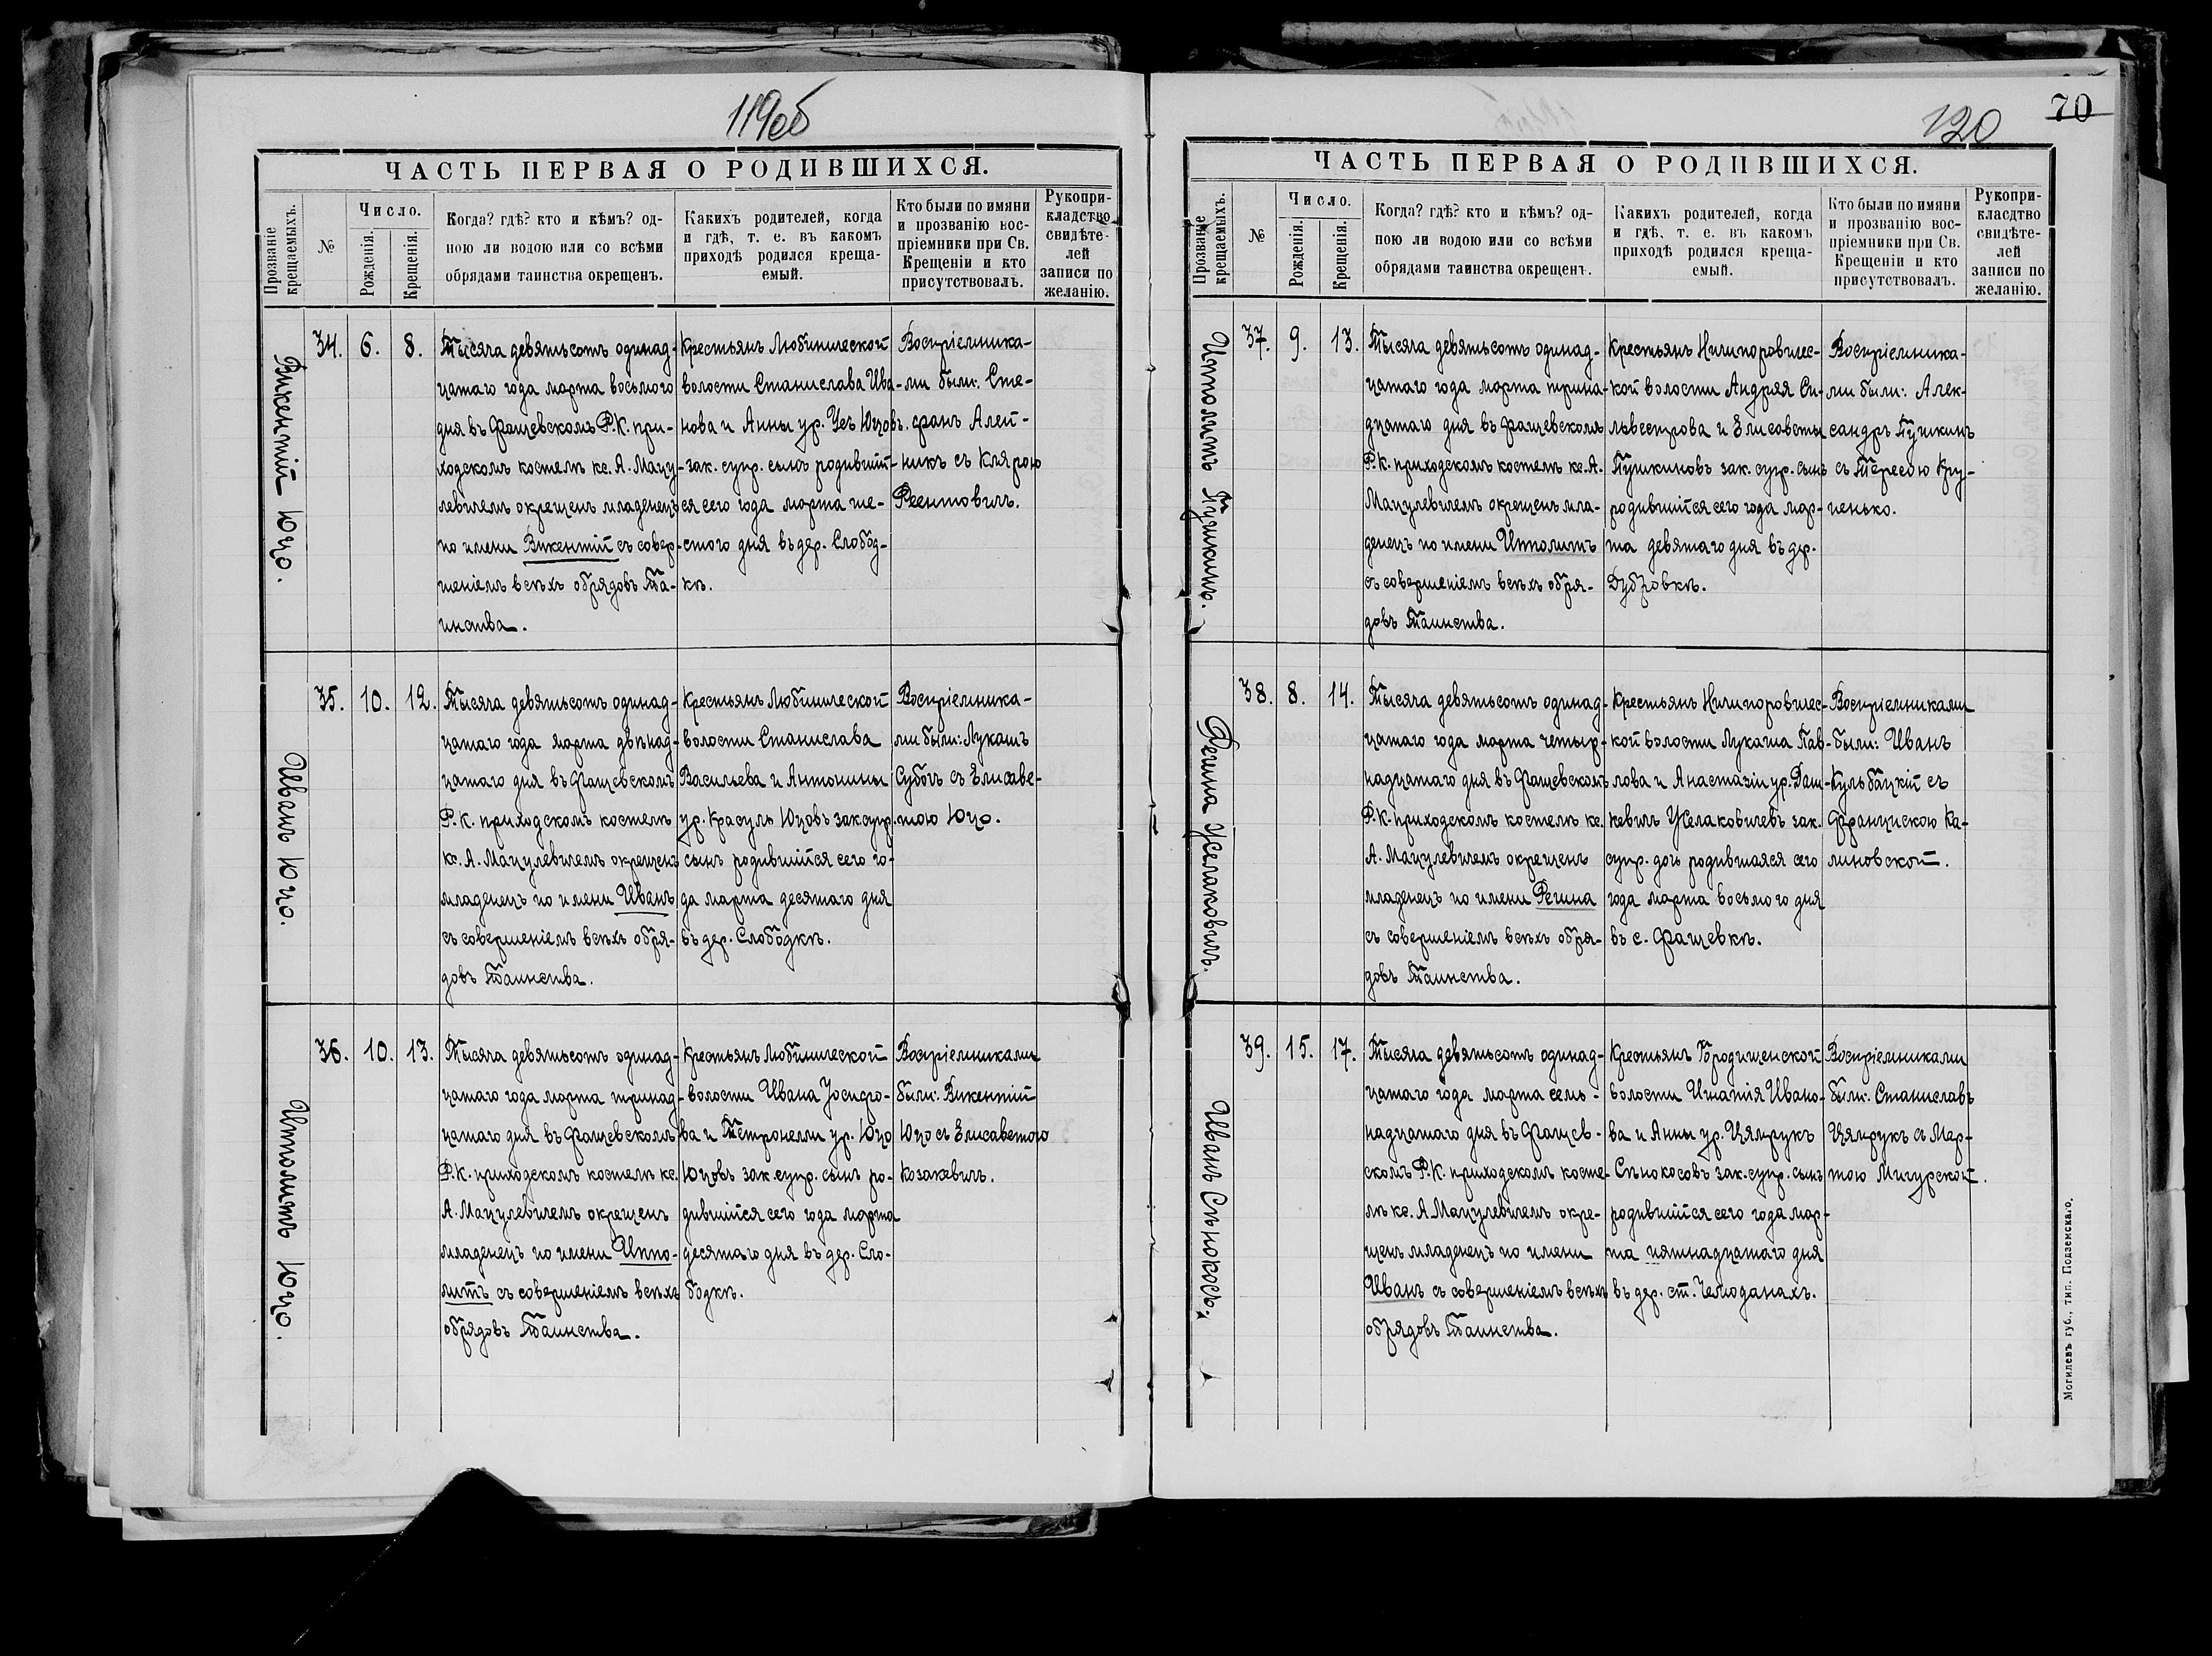 119об
ЧАСТЬ ПЕРВАЯ О РОДИВШИХСЯ.
Прозваніе крещаемыхъ.
№
Число.
Рожденія.
Крещенія.
Когда? гдѣ? кто и кѣмъ? од-
ною ли водою или со всѣми
обрядами таинства окрещенъ.
Какихъ родителей, когда
и гдѣ, т. е. въ какомъ
приходѣ родился креща-
емый.
Кто были по имяни
и прозванію вос-
пріемники при Св.
Крещеніи и кто
присутствовалъ.
Рукопри-
кладство
свидѣте-
лей
записи по
желанію.
Викентій Юцо.
34. 6. 8.
Тысяча девятьсотъ одинад-
цатаго года марта восьмого
дня въ Фащевскомъ Р.К. при-
ходскомъ костелѣ кс. А. Мацу-
левичемъ окрещенъ младенецъ
по имени Викентій съ совер-
шеніемъ всѣхъ обрядовъ Та-
инства.
Крестьянъ Любиничской
волости Станислава Ива-
нова и Анны ур. Усъ Юцовъ.
зак. супр. сынъ родивший-
ся сего года марта ше-
стого дня въ дер. Слобод-
кѣ.
Воспріемника-
ми были: Сте-
фанъ Алей-
никъ съ Клярою
Реентовичъ.
Иванъ Юцо.
35. 10. 12.
Тысяча девятьсотъ одинад-
цатаго года марта двѣнад-
цатаго дня въ Фащевскомъ
Р.К. приходскомъ костелѣ
кс. А. Мацулевичемъ окрещенъ
младенецъ по имени Иванъ
съ совершеніемъ всѣхъ обря-
довъ Таинства.
Крестьянъ Любиничской
волости Станислава
Васильева и Антонины
ур. Красуль Юцовъ зак супр.
сынъ родившийся сего го-
да марта десятаго дня
въ дер. Слободкѣ.
Воспріемника-
ми были: Лукашъ
Суботъ съ Елисаве-
тою Юцо.
Ипполитъ Юцо.
36. 10. 13.
Тысяча девятьсотъ одинад-
цатаго года марта тринад-
цатаго дня въ Фащевскомъ
Р.К. приходскомъ костелѣ кс.
А. Мацулевичемъ окрещенъ
младенецъ по имени Иппо-
литъ съ совершеніемъ всѣхъ
обрядовъ Таинства.
Крестьянъ Любиничской
волости Ивана Іосифо-
ва и Петронели ур. Юцо
Юцовъ зак. супр. сынъ ро-
дившийся сего года марта
десятаго дня въ дер. Сло-
бодкѣ.
Воспріемниками
были: Викентій
Юцо съ Елисаветою
Козакевичъ.
120
70
ЧАСТЬ ПЕРВАЯ О РОДИВШИХСЯ.
Прозваніе крещаемыхъ.
№
Число.
Рожденія.
Крещенія.
Когда? гдѣ? кто и кѣмъ? од-
ною ли водою или со всѣми
обрядами таинства окрещенъ.
Какихъ родителей, когда
и гдѣ, т. е. въ какомъ
приходѣ родился креща-
емый.
Кто были по имяни
и прозванію вос-
пріемники при Св.
Крещеніи и кто
присутствовалъ.
Рукопри-
класдтво
свидѣте-
лей
записи по
желанію.
Ипполитъ Пушкинъ.
37. 9. 13.
Тысяча девятьсотъ одинад-
цатаго года марта трина-
дцатаго дня въ Фащевскомъ
Р.К. приходскомъ костелѣ кс. А.
Мацулевичемъ окрещенъ мла-
денецъ по имени Ипполитъ
съ совершеніемъ всѣхъ обря-
довъ Таинства.
Крестьянъ Ничипоровичес-
кой волости Андрея Си-
львестрова и Елисоветы
Пушкиновъ зак. супр. сынъ
родившийся сего года мар-
та девятаго дня въ дер.
Дубровкѣ.
Воспріемника-
ми были: Алек-
сандръ Пушкинъ
съ Тересою Кру-
ченько.
Регина Жслаковичъ.
38. 8. 14.
Тысяча девятьсотъ одинад-
цатаго года марта четыр-
надцатаго дня въ Фащевскомъ
Р.К. приходскомъ костелѣ кс.
А. Мацулевичемъ окрещенъ
младенецъ по имени Регина
съ совершеніемъ всѣхъ обря-
довъ Таинства.
Крестьянъ Ничипоровичес-
кой волости Лукаша Пав-
лова и Анастазіи ур. Даш-
кевичъ зак.
супр. дочь родившаяся сего
года марта восьмого дня
въ с. Фащевкѣ.
Воспріемниками
были: Иванъ
Кульбацкій съ
Францискою Ка-
линовской.
Иванъ Сѣнокосъ.
39. 15. 17.
Тысяча девятьсотъ одинад-
цатаго года марта семь-
надцатаго дня въ Фащев-
скомъ Р.К. приходскомъ косте-
лѣ кс. А. Мацулевичемъ окре-
щенъ младенецъ по имени
Иванъ съ совершеніемъ всѣхъ
обрядовъ Таинства.
Крестьянъ Городищенской
волости Игнатія Ивано-
ва и Анны ур. Цямрукъ
Сѣнокосовъ зак. супр. сынъ
родившийся сего года мар-
та пятнадцатаго дня
въ дер. ст. Чемоданахъ.
Воспріемниками
были: Станиславъ
Цямрукъ съ Мар-
тою Мигурской.
Могилевъ губ., тип. Подземскаго.